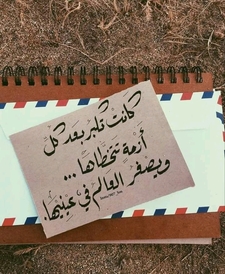 كانت تكبر بعد كل
أزمة تتخطاها ...
ويصغر العالم في عينيها.